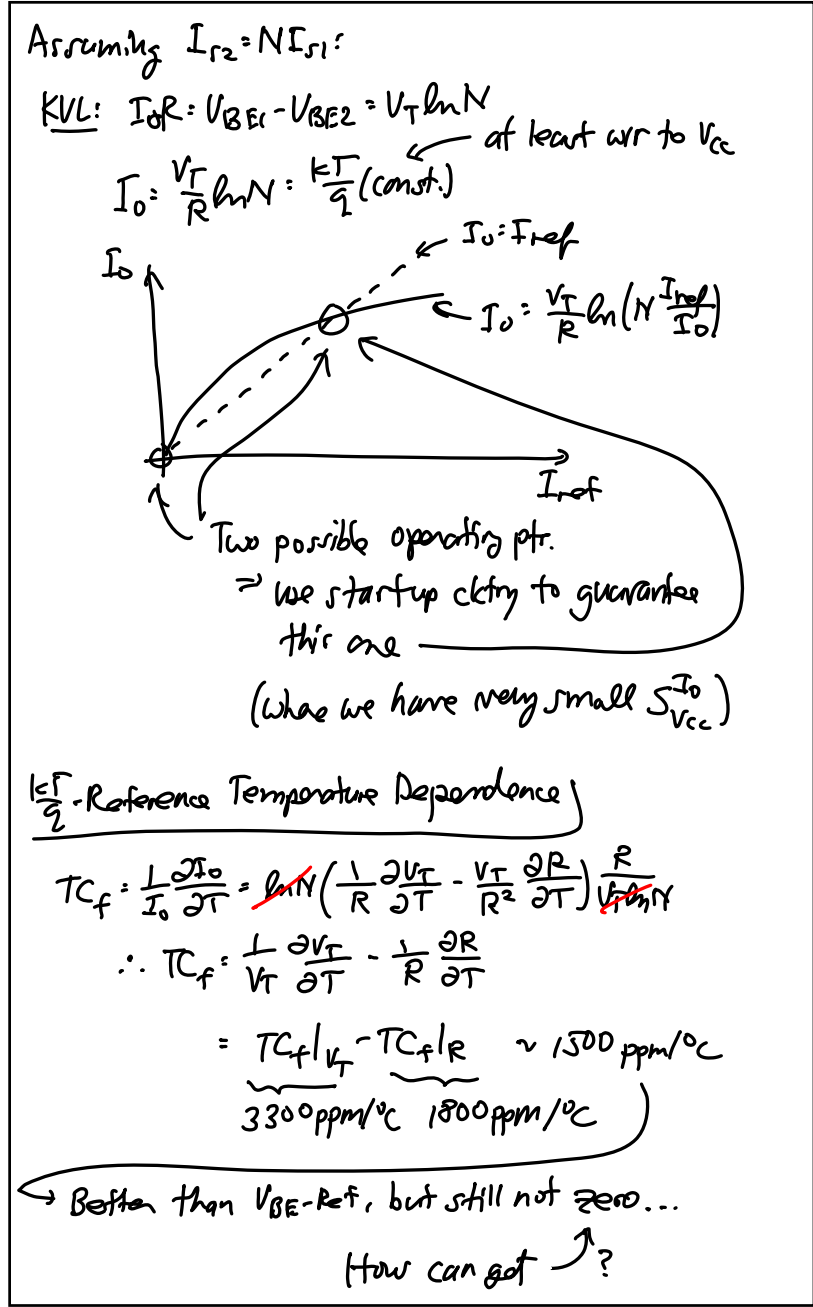 Assuming I_S2 = N I_S1:
KVL: I_0R = V_BE1 - V_BE2 = V_T ln N
at least wr to V_CC
I_0 = V_T/R ln N = kT/q (const.)
I_0 = I_ref
I_0
I_0 = V_T/R ln(N I_ref/I_0)
I_ref
Two possible operating pts.
⇒ use startup cktry to guarantee
this one
(where we have very small S^I_0_V_CC)
kT/q - Reference Temperature Dependence
TC_f = 1/I_0 ∂I_0/∂T = ln N (1/R ∂V_T/∂T - V_T/R² ∂R/∂T) R/(V_T ln N)
∴ TC_f = 1/V_T ∂V_T/∂T - 1/R ∂R/∂T
= TC_f|_V_T - TC_f|_R ~ 1500 ppm/°C
3300 ppm/°C 1800 ppm/°C
Better than V_BE-Ref, but still not zero...
How can get ?